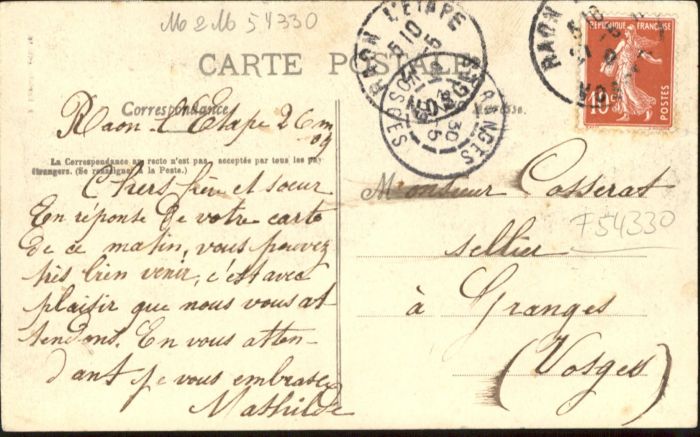 M2M 54330
CARTE POSTALE
Correspondance
RAON L'ETAPE
5 10
VOSGES
GRANGES
VOSGES
RAON
5 10
REPUBLIQUE FRANÇAISE
10c
POSTES
Raon-l'Etape 26 m
09
La Correspondance au recto n'est pas acceptée par tous les pays
étrangers. (Se renseigner à la Poste.)
Chers frère et soeur
En réponse de votre carte
de ce matin, vous pouvez
très bien venir, c'est avec
plaisir que nous vous at
tendons. En vous atten-
dant je vous embrasse
Mathilde
Monsieur Cosserat
F54330
sellier
à Granges
(Vosges)